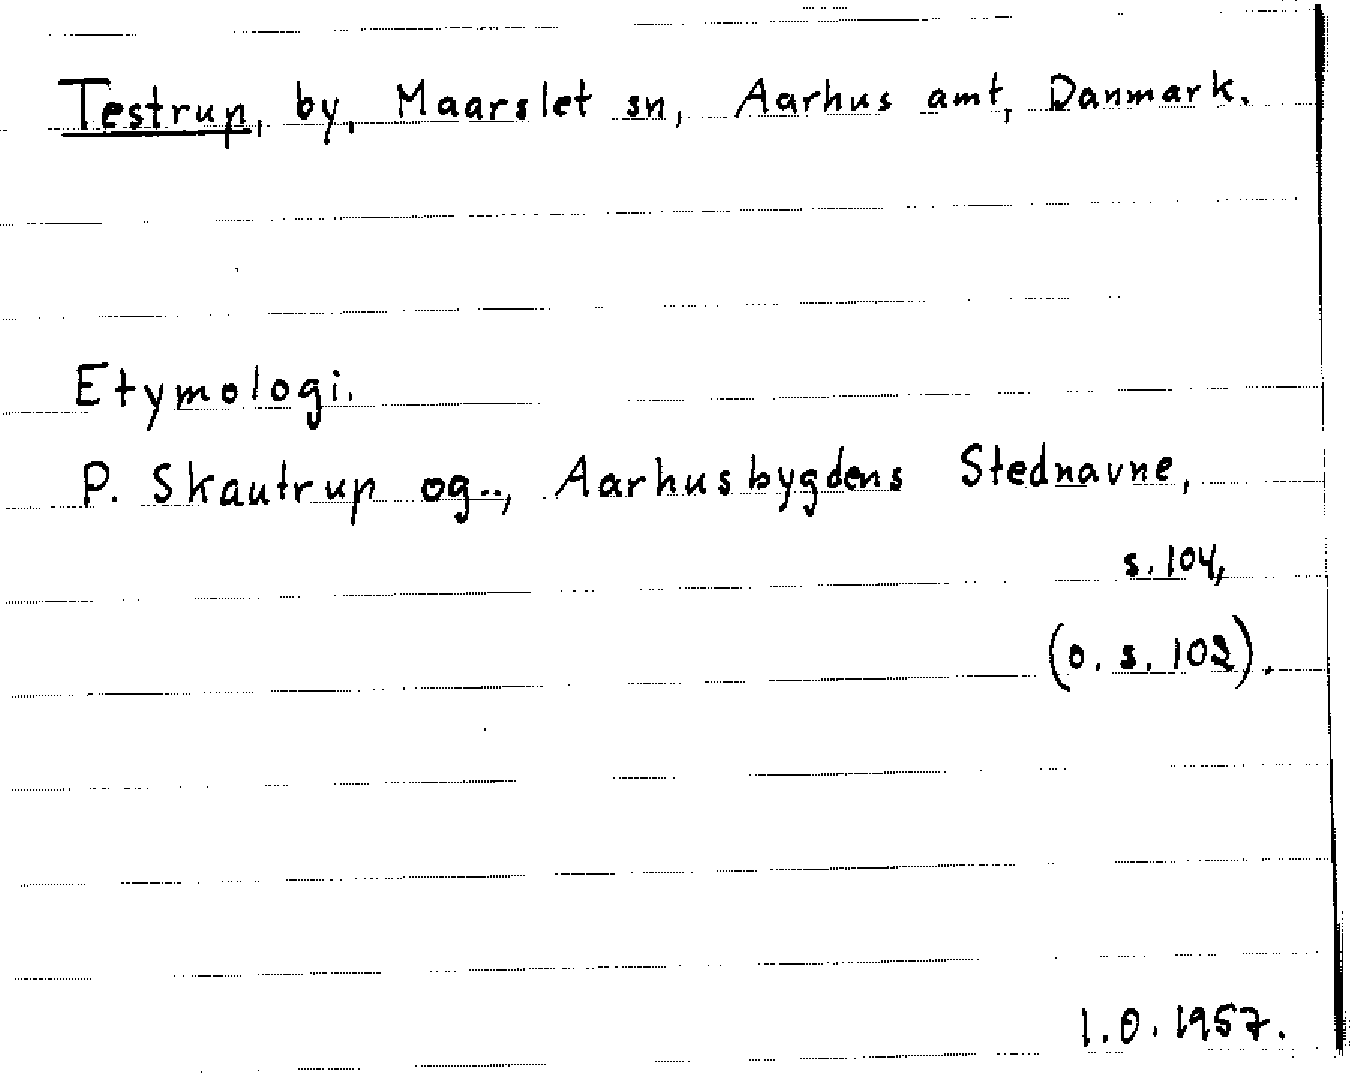 Testrup, by, Maarslet sn, Aarhus amt, Danmark.
Etymologi.
P. Skautrup og.., Aarhusbygdens Stednavne,
s. 104,
(o. s. 102).
1.0.1957.